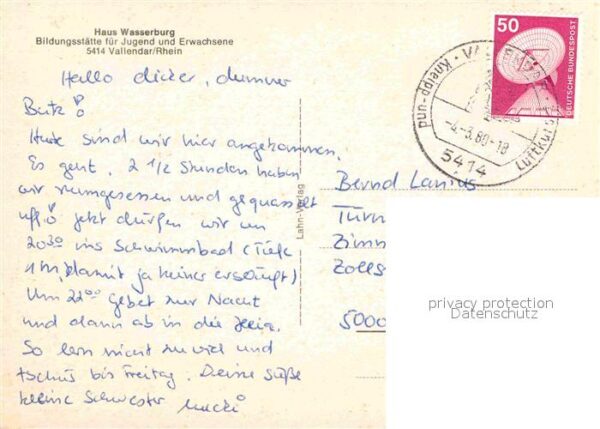 Haus Wasserburg
Bildungsstätte für Jugend und Erwachsene
5414 Vallendar/Rhein
Hallo dicker, dummer
Butz!
Heute sind wir hier angekommen.
Es geht. 2 1/2 Stunden haben
wir rumgesessen und gequasselt
uff! Jetzt dürfen wir um
20³⁰ ins Schwimmbad (Tiefe
1m, damit ja keiner ersäuft)
Um 22⁰⁰ Gebet zur Nacht
und dann ab in die Heia.
So lern nicht zu viel und
tschüs bis Freitag. Deine süße
kleine Schwester
Lahn-Verlag
50
DEUTSCHE BUNDESPOST
Kneipp-und
Luftkur
-4.-3.80-18
5414
Bernd
Türn
Zimm
Zolls
5000
privacy protection
Datenschutz